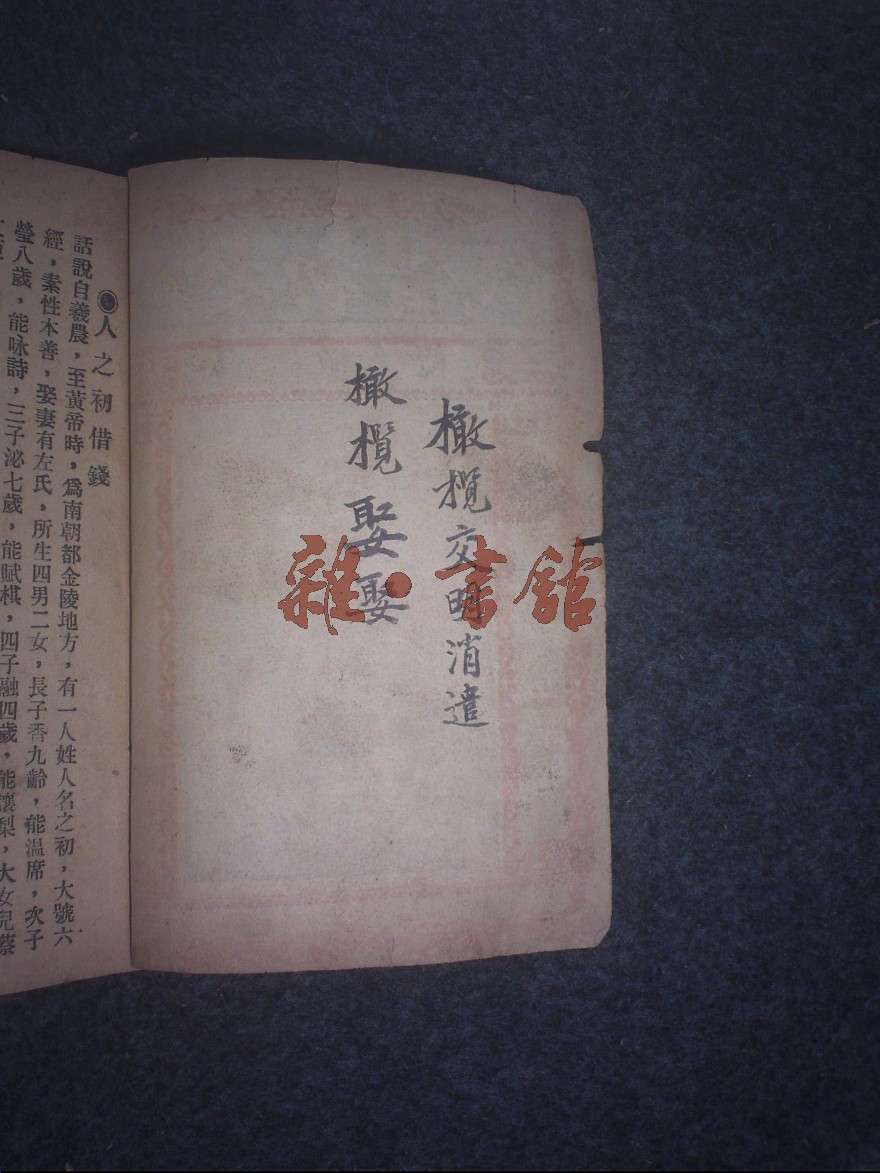 橄欖交時消遣
橄欖娶娶
雜·書館
人之初借錢
話說自羲農，至黃帝時，爲南朝都金陵地方，有一人姓人名之初，大號六
經，素性本善，娶妻有左氏，所生四男二女，長子香九齡，能溫席，次子
瑩八歲，能咏詩，三子泌七歲，能賦棋，四子融四歲，能讓梨，大女兒蔡